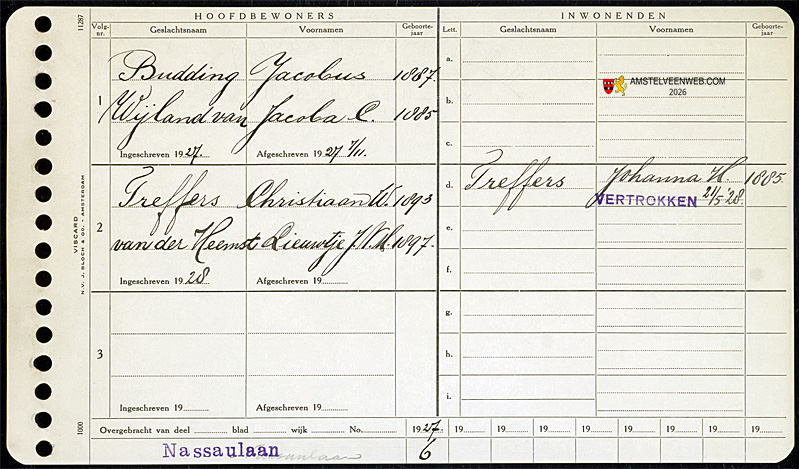 HOOFDBEWONERS
INWONENDEN
11287
Volg-nr. Geslachtsnaam Voornamen Geboorte-jaar
Lett. Geslachtsnaam Voornamen Geboorte-jaar
1
Budding Jacobus 1887.
Wijland van Jacoba C. 1885
Ingeschreven 1927. Afgeschreven 1927 7/11.
a.
b.
c.
AMSTELVEENWEB.COM
2026
2
Treffers Christiaan W. 1893
van der Heemst Lieuwtje J.V.M. 1897.
Ingeschreven 1928 Afgeschreven 19
d. Treffers Johanna H. 1885.
VERTROKKEN 21/5 '28.
e.
f.
3
Ingeschreven 19 Afgeschreven 19
g.
h.
i.
VISCARD
N.V. J. BLOCH & CO. - AMSTERDAM
1000
Overgebracht van deel blad wijk No. 1927. 19 19 19 19 19 19 19 19
Nassaulaan 6